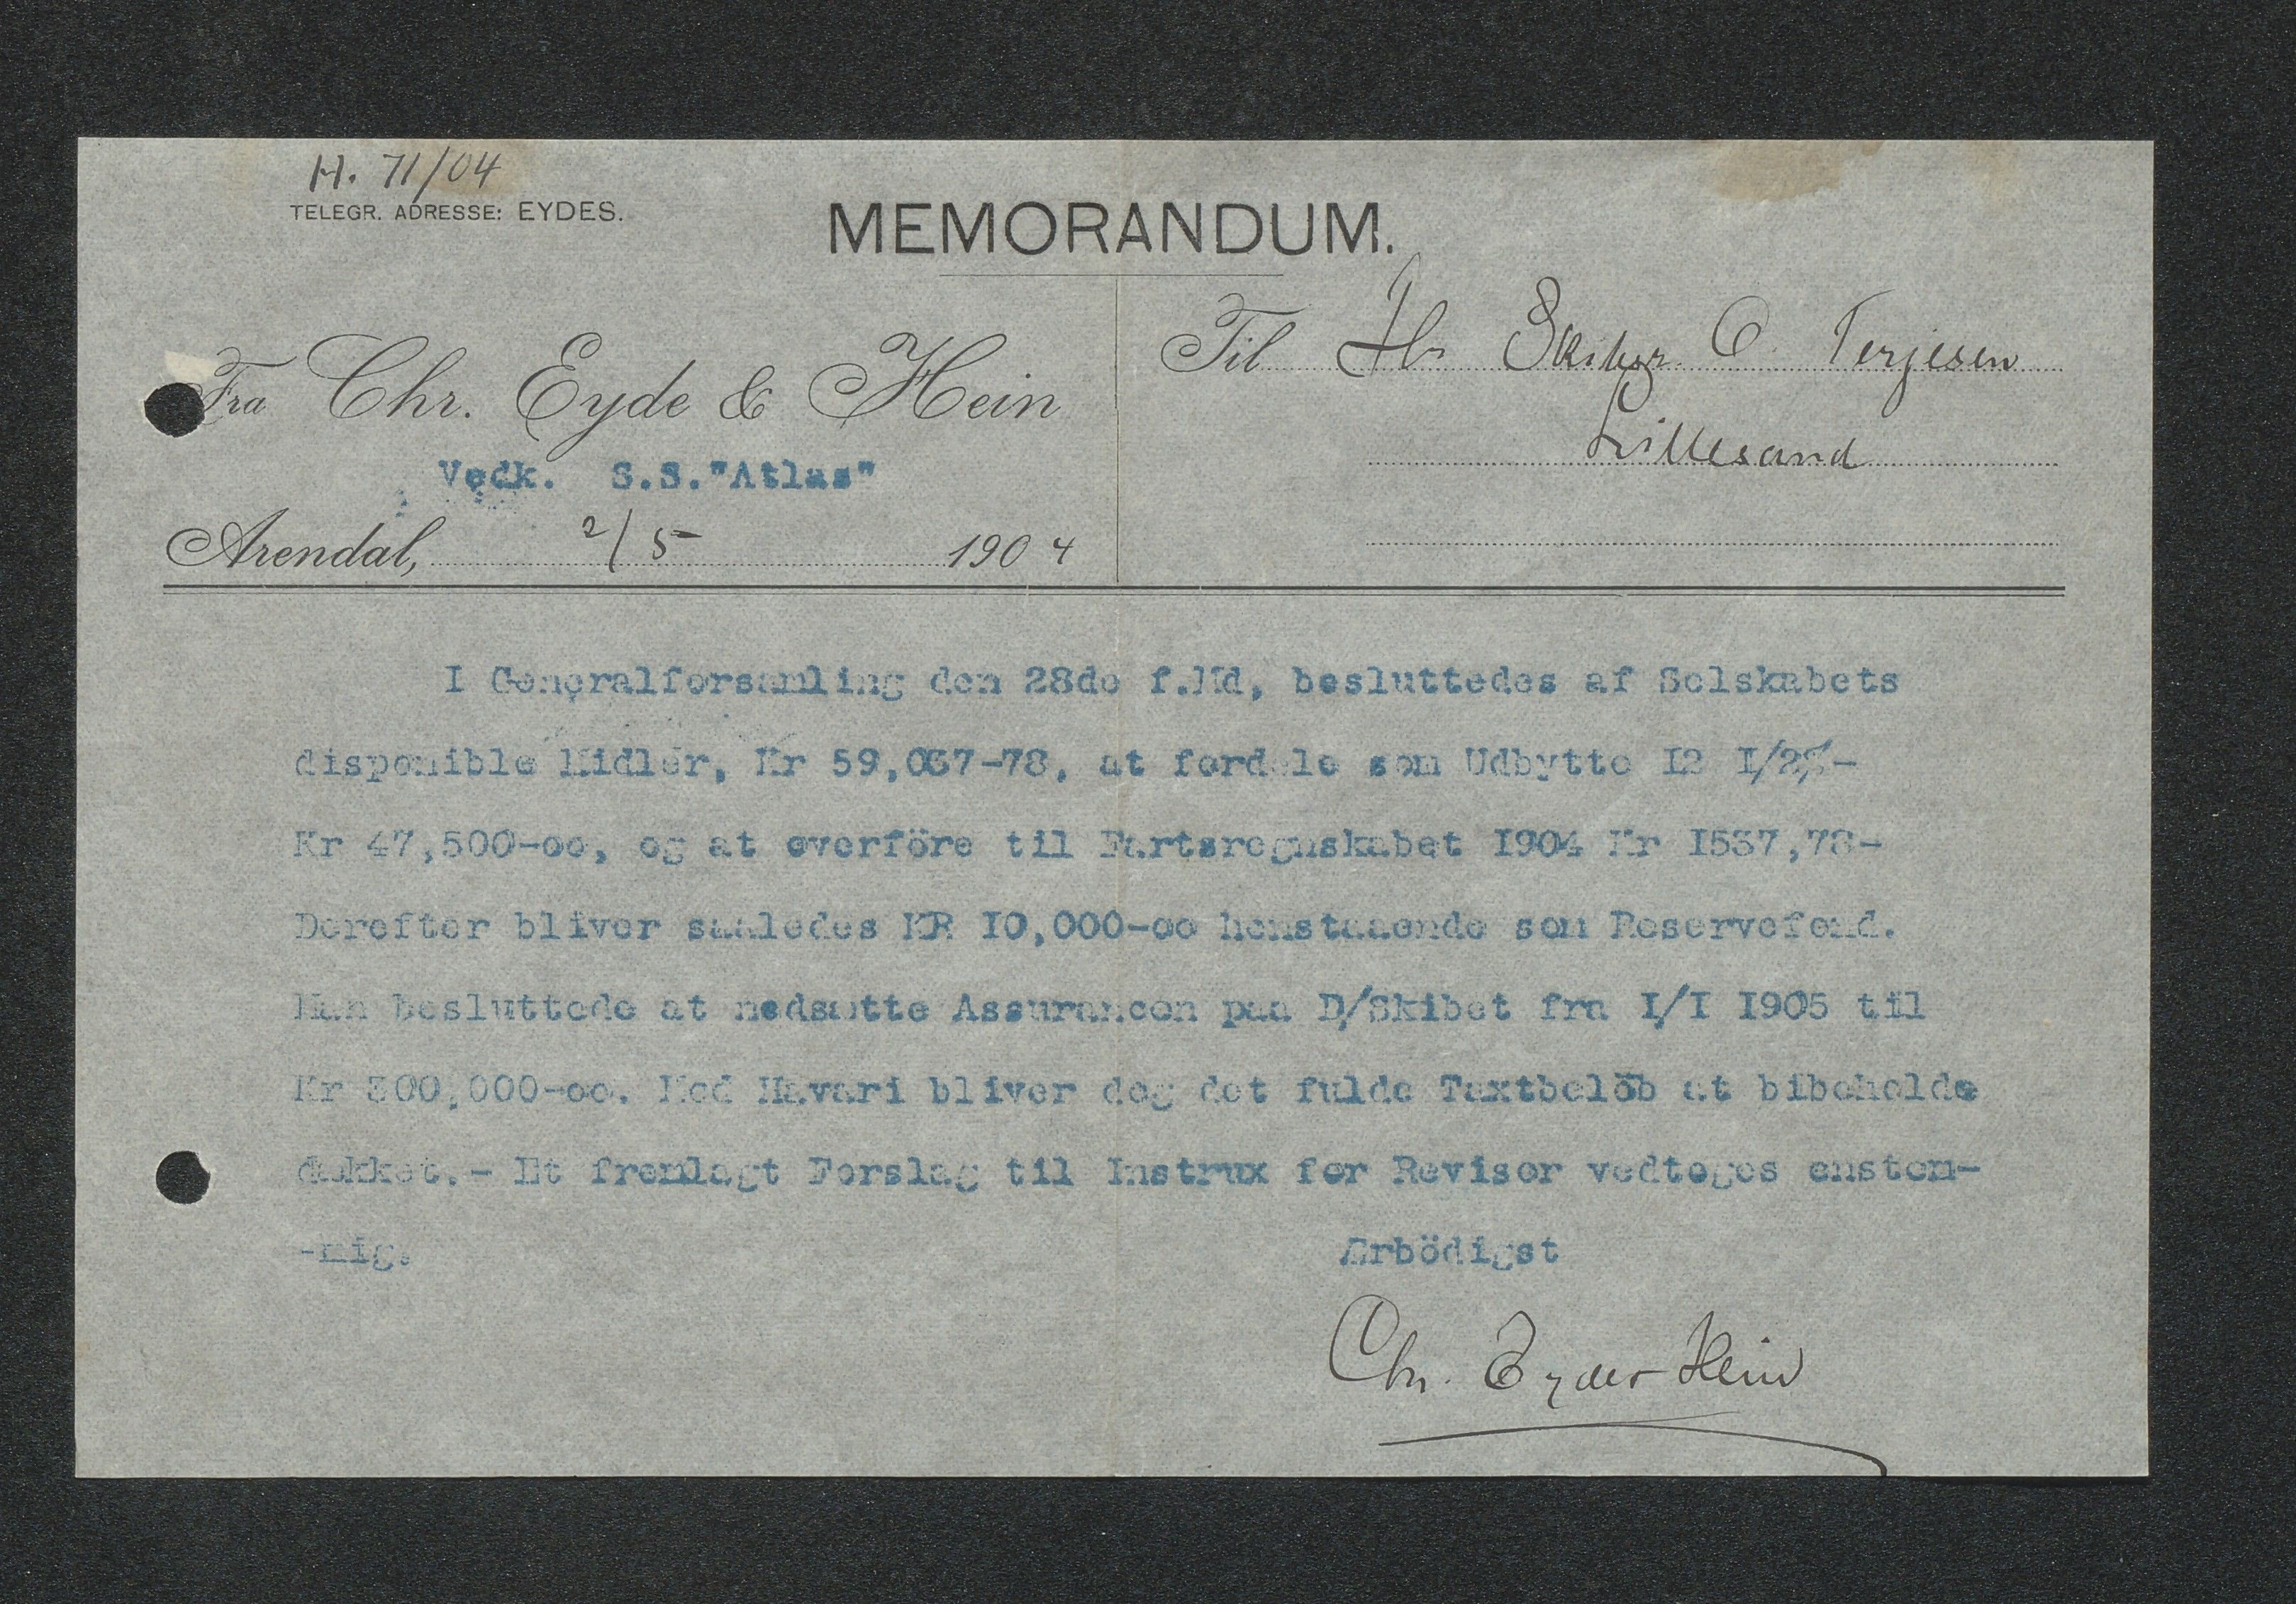 H. 71/04
TELEGR. ADRESSE: EYDES.
MEMORANDUM.
Fra Chr. Eyde & Hein
Vedk. S.S."Atlas"
Arendal, 2/5 1904
Til Hr Skibsr. O. Terjesen
Lillesand
I Generalforsamling den 28de f.Md, besluttedes af Selskabets
disponible Midler, Kr 59,037-78, at fordele som Udbytte 12 I/2%-
Kr 47,500-oo, og at overföre til Fartsregnskabet 1904 Kr 1537,78-
Derefter bliver saaledes KR IO,000-oo henstaaende som Reservefond.
Man besluttede at nedsætte Assurancen paa D/Skibet fra I/I 1905 til
Kr 300,000-oo. Med Havari bliver dog det fulde Taxtbelöb at bibeholde
dækket.- Et fremlagt Forslag til Instrux for Revisor vedtoges enstem-
-mig.
Ærbödigst
Chr. Eyde & Hein